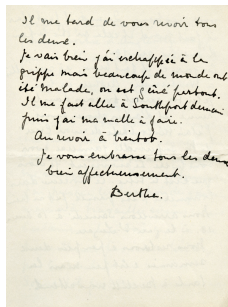 Il me tarde de vous revoir tous
les deux.
Je vais bien j'ai échappée à la
grippe mais beaucoup de monde ont
été malade, on est gêné partout.
Il me faut aller à Southport demain
puis j'ai ma malle à faire.
Au revoir à bientôt.
Je vous embrasse tous les deux
bien affectueusement.
Berthe.